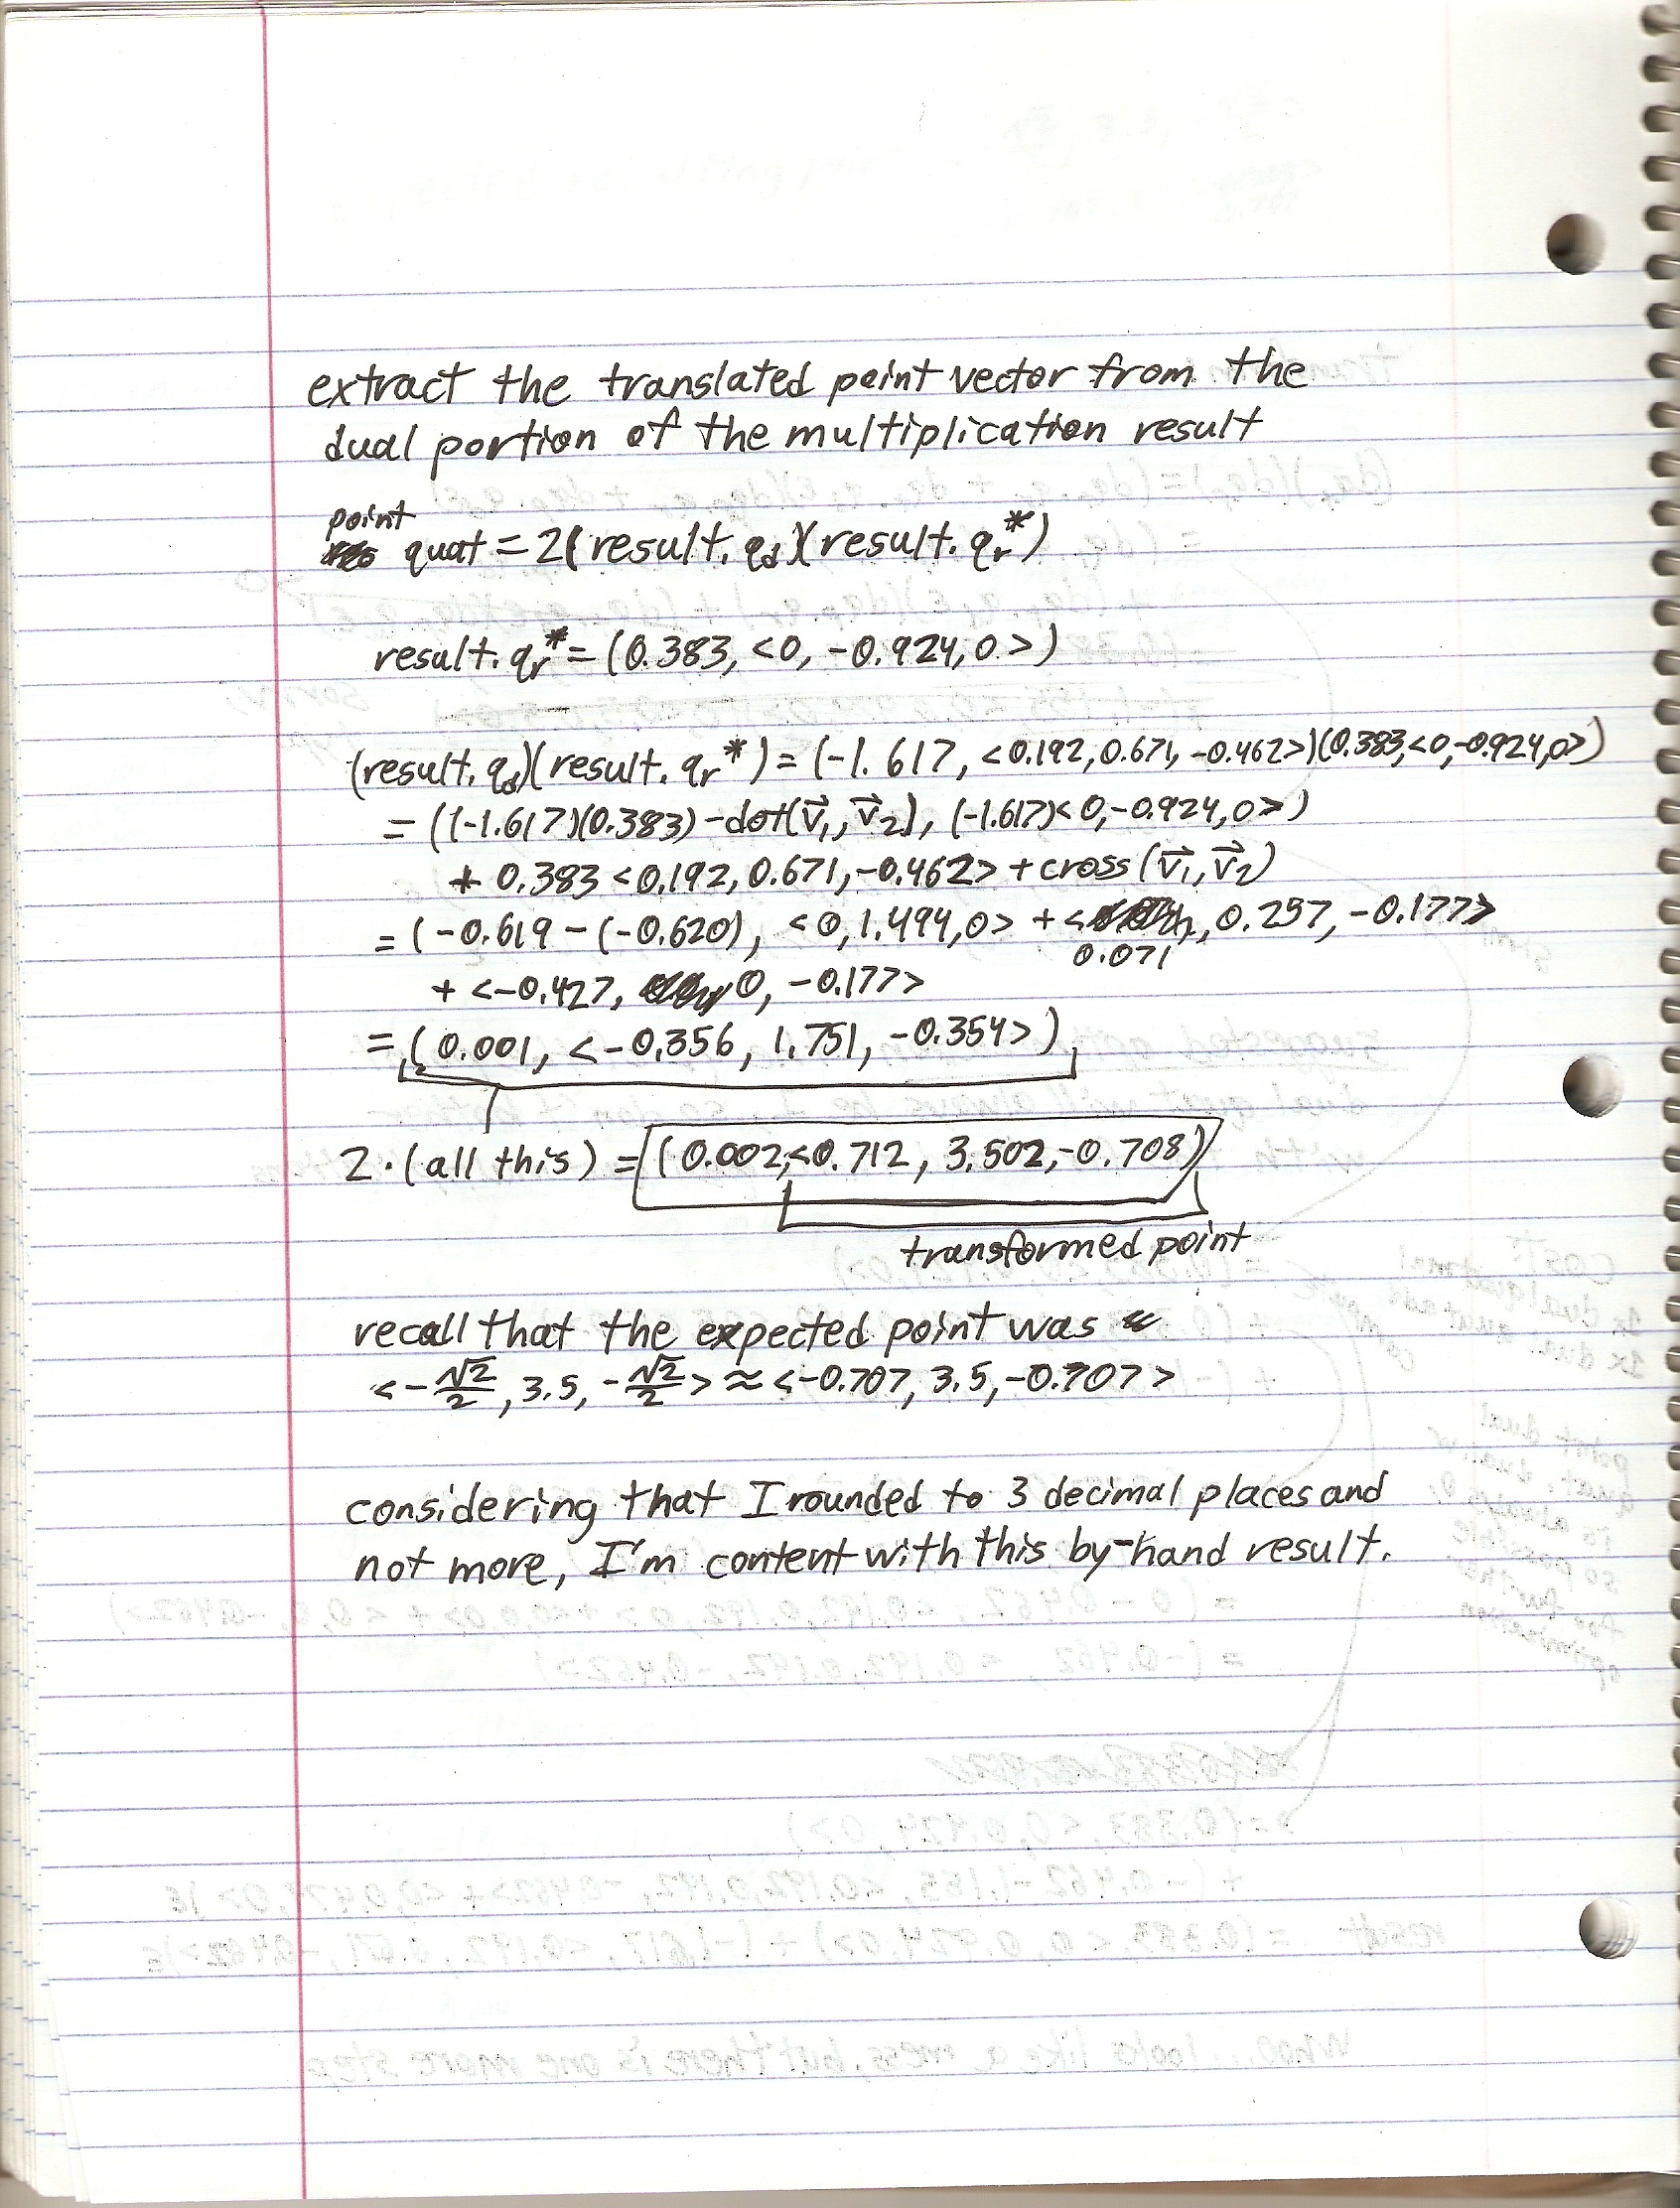 extract the translated point vector from the
dual portion of the multiplication result
point
quat = 2(result. q_d)(result. q_r*)
result. q_r* = (0.383, <0, -0.924, 0>)
(result. q_d)(result. q_r*) = (-1.617, <0.192, 0.671, -0.462>)(0.383, <0, -0.924, 0>)
= ((-1.617)(0.383) - dot(v⃗₁, v⃗₂), (-1.617)<0, -0.924, 0>)
+ 0.383 <0.192, 0.671, -0.462> + cross (v⃗₁, v⃗₂)
= (-0.619 - (-0.620), <0, 1.494, 0> + < , 0.257, -0.177>
0.071
+ <-0.427, 0, -0.177>
= (0.001, <-0.356, 1.751, -0.354>)
2 · (all this) = (0.002, <0.712, 3.502, -0.708)
transformed point
recall that the expected point was ≈
<-√2/2, 3.5, -√2/2> ≈ <-0.707, 3.5, -0.707>
considering that I rounded to 3 decimal places and
not more, I'm content with this by-hand result.